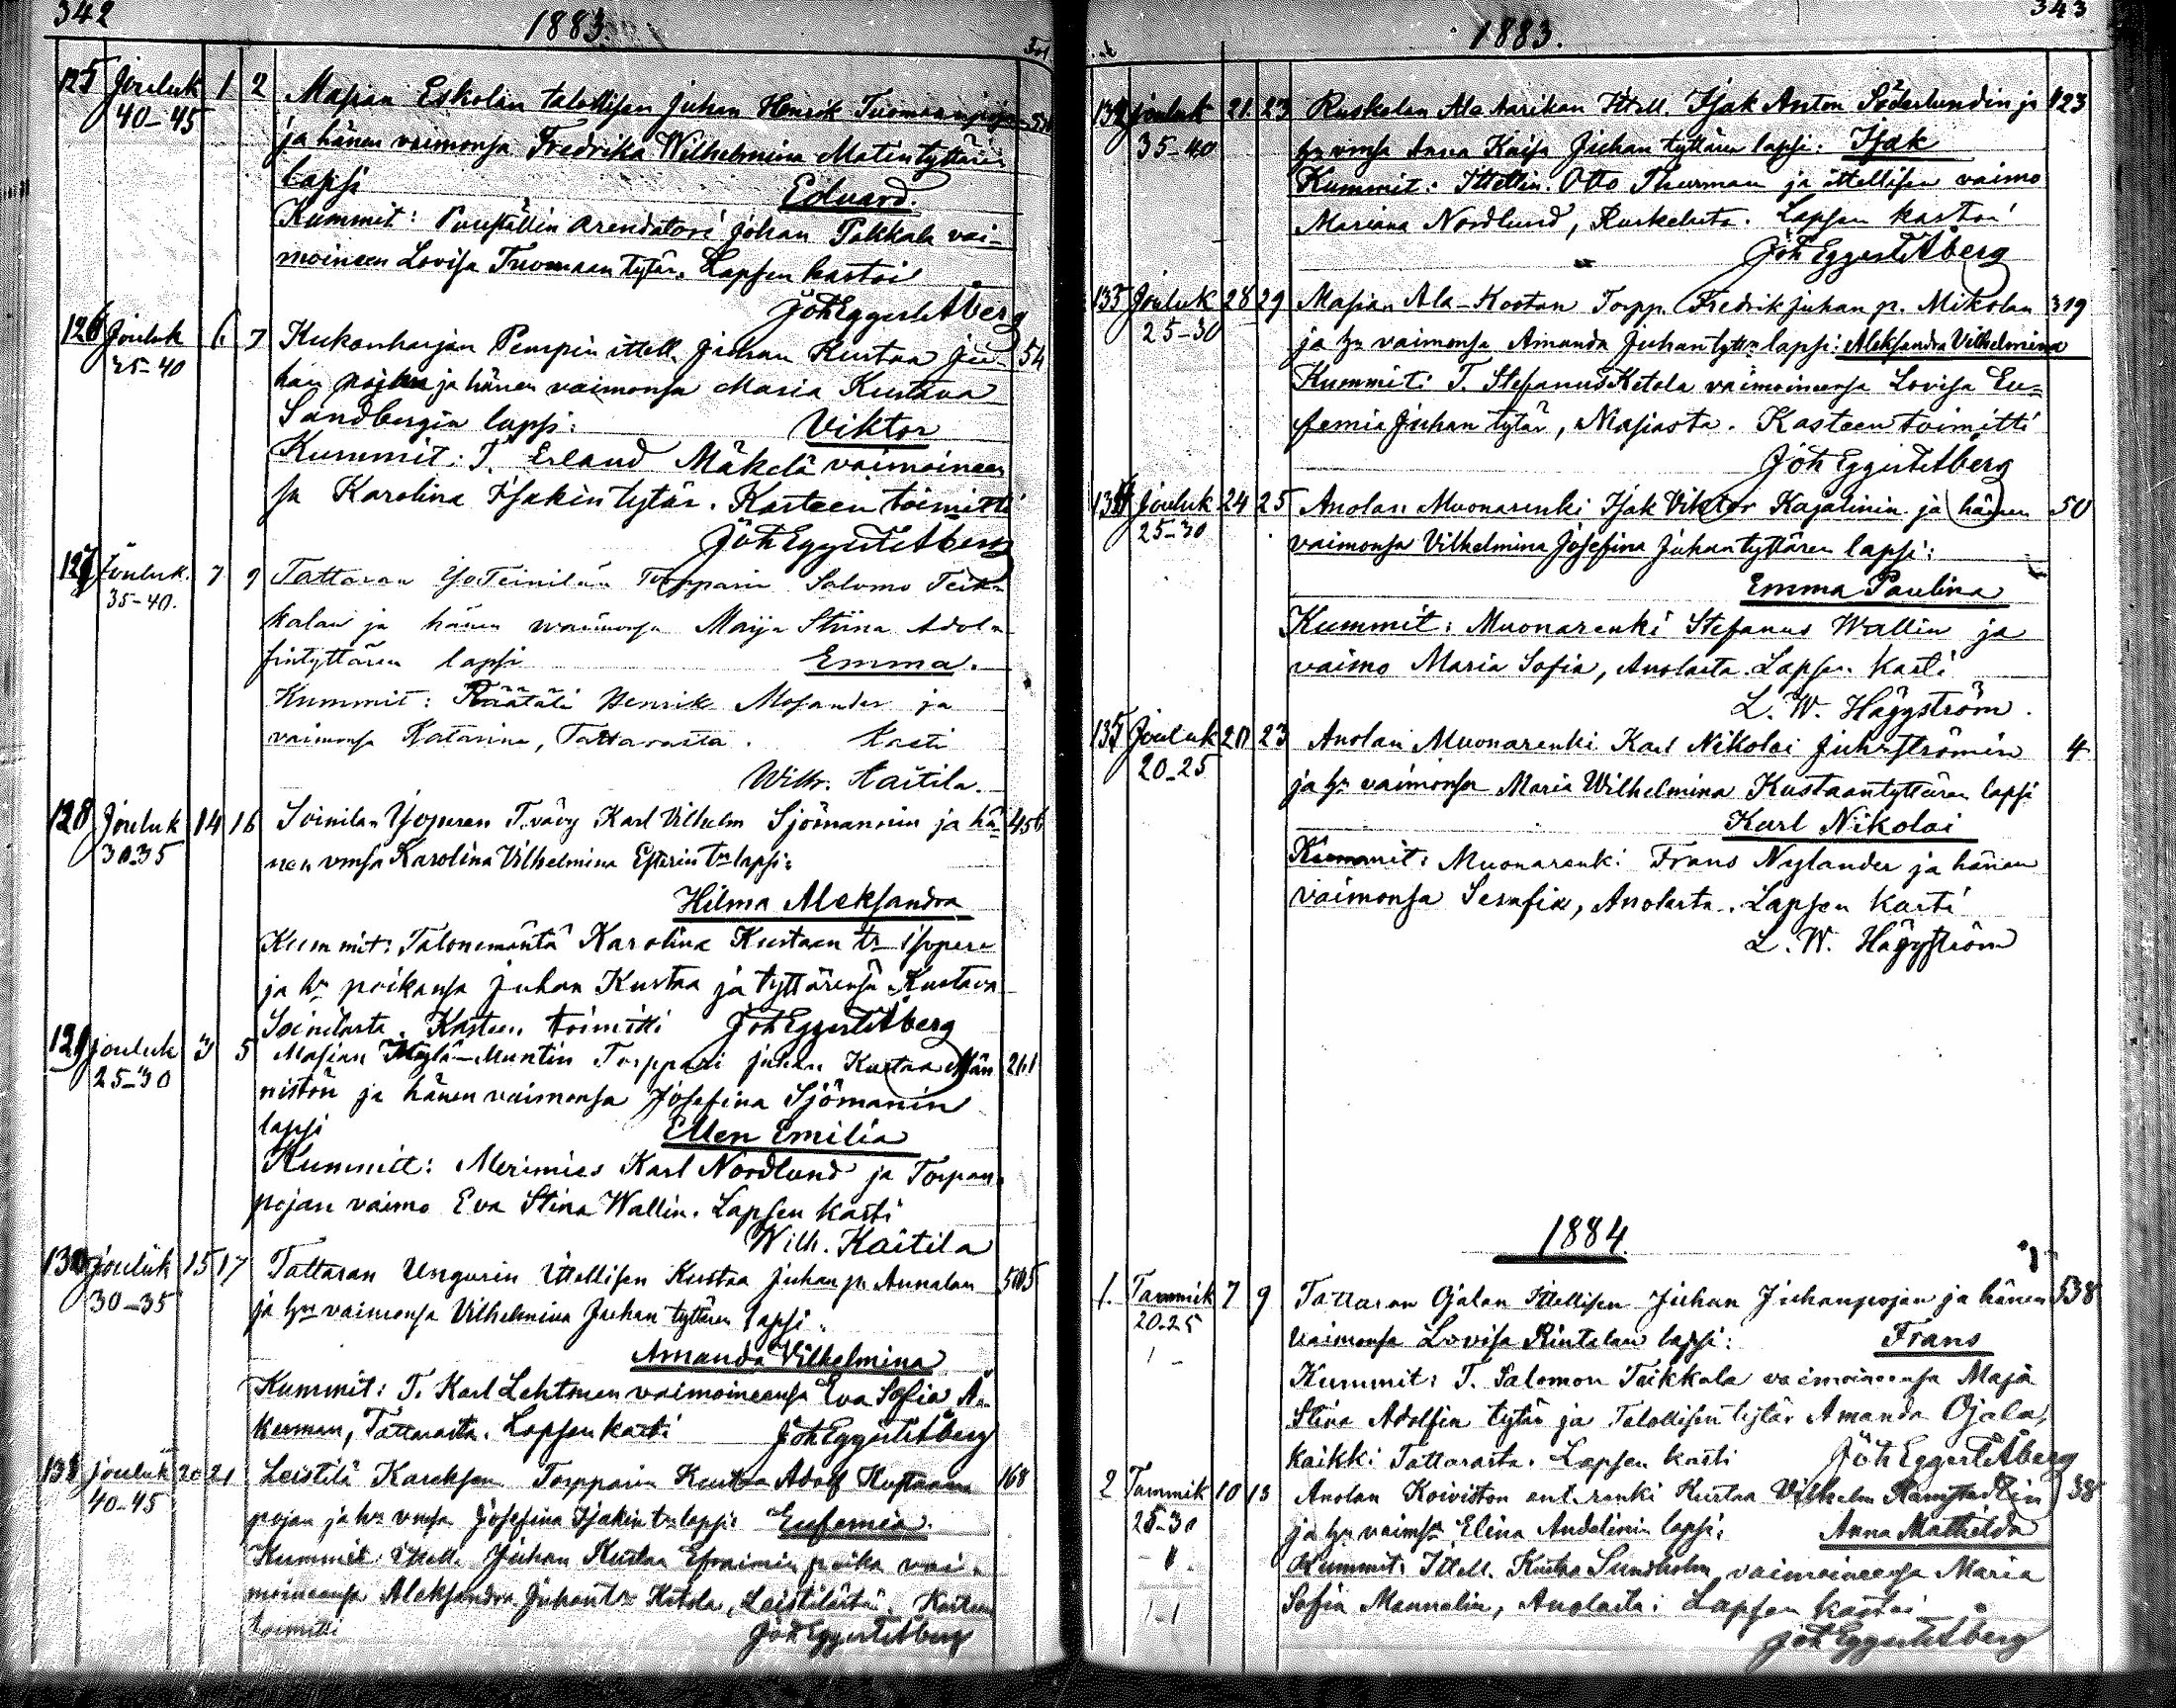 342
1883.
125 Jouluk 1 2 Masian Eskolan talollisen Juhan Henrik Tuomaanpojan
40-45 ja hänen vaimonsa Fredrika Wilhelmina Matintyttären
lapsi Eduard.
Kummit: Puuställin arendatori Johan Pakkala vai-
moineen Lovisa Tuomaantytär. Lapsen kastoi
Joh Eggert Åberg
126 Jouluk 6. 7 Kukonharjan Pempin ittell. Juhan Kustaa Ju- 54
35-40 han pojan ja hänen vaimonsa Maria Kustava
Sandbergin lapsi: Viktor
Kummit: T. Erland Mäkelä vaimoineen
sa Karolina Isakintytär. Kasteen toimitti
Joh Eggert Åberg
127 Jouluk. 7 9 Tattaran Torpparin Salomo Teik-
35-40. kalan ja hänen waimonsa Maija Stiina Adol-
fintyttären lapsi Emma.
Kummit: Räätäli Henrik Mosander ja
vaimonsa Katarina, Tattarasta. Kasti
Wilh. Kaitila.
128 Jouluk 14 16 Soinilan Yoperen T. vävy Karl Vilhelm Sjömannin ja hä- 456
30-35 nen vmsa Karolina Vilhelmina Esterin tr lapsi:
Hilma Aleksandra
Kummit: Talonemäntä Karolina Kustaan tr
ja hn poikansa Juhan Kustaa ja tyttärensä Kustava
Soinilasta. Kasteen toimitti Joh Eggert Åberg
129 jouluk 3 5 Masian Torppari Juhan Kustaa Män 261
25-30 nistön ja hänen vaimonsa Josefina Sjömanin
lapsi Ellen Emilia
Kummit: Merimies Karl Nordlund ja Torpan
pojan vaimo Eva Stina Wallin. Lapsen kasti
Wilh. Kaitila
130 jouluk 15 17 Tattaran Ungurin Ittellisen Kustaa Juhan p. Annalan 505
30-35 ja hn vaimonsa Vilhelmina Juhan tyttären lapsi
Amanda Vilhelmina
Kummit: T. Karl Lehtonen vaimoineensa Eva Sofia Å-
kerman, Tattarasta. Lapsen kasti Joh Eggert Åberg
131 jouluk 20 21 Leistilä Torpparin Kustaa Adolf Kustaan 168
40-45 pojan ja hn vmsa Josefina Isakin tr lapsi: Eufemia.
Kummit: Ittell. Juhan Kustaa Efraimin poika vai-
moineensa Aleksandra Juhan tr Ketola, Leistilästä. Kasteen
toimitti Joh Eggert Åberg
343
1883.
132 jouluk 21. 23 Ruskelan Ala Aarikan Ittell. Isak Anton Söderlundin ja 123
35-40 hn vmsa Anna Kaisa Juhan tyttären lapsi. Isak
Kummit: Ittellin. Otto Thurman ja ittellisen vaimo
Mariana Nordlund, Ruskelasta. Lapsen kastoi
Joh Eggert Åberg
133 Jouluk 28 29 Masian Ala-Kootan Torpp. Fredrik Juhan p. Mikolan 319
25-30 ja hn vaimonsa Amanda Juhantyttn lapsi: Aleksandra Vilhelmina
Kummit: T. Stefanus Ketola vaimoineensa Lovisa Eu-
femia Juhan tytär, Masiasta. Kasteen toimitti
Joh Eggert Åberg
134 Jouluk 24 25 Anolan Muonarenki Isak Viktor Kajalinin ja hänen 50
25-30 vaimonsa Vilhelmina Josefina Juhantyttären lapsi:
Emma Paulina
Kummit: Muonarenki Stefanus Wallin ja
vaimo Maria Sofia, Anolasta. Lapsen kasti
L. W. Häggström.
135 Jouluk 20 23 Anolan Muonarenki Karl Nikolai Juhrströmin 4
20-25 ja hn vaimonsa Maria Wilhelmina Kustaantyttären lapsi
Karl Nikolai
Kummit: Muonarenki Frans Nylander ja hänen
vaimonsa Serafia, Anolasta. Lapsen kasti
L. W. Häggström
1884.
1. Tammik 7 9 Tattaran Ojalan Ittellisen Juhan Juhanpojan ja hänen 538
20-25 vaimonsa Lovisa Rintalan lapsi: Frans
Kummit: T. Salomon Teikkala vaimoineensa Maja
Stina Adolfin tytär ja Talollisen tytär Amanda Ojala,
kaikki Tattarasta. Lapsen kasti Joh Eggert Åberg
2 Tammik 10 13 Anolan Koiviston renki Kustaa Vilhelm Ramstedtin 38
25-30 ja hn vaimsa Elina Andelinin lapsi: Anna Mathilda
Kummit: Ittell. Kustaa Sundholm vaimoineensa Maria
Sofia Mannelin, Anolasta: Lapsen kastoi
Joh Eggert Åberg